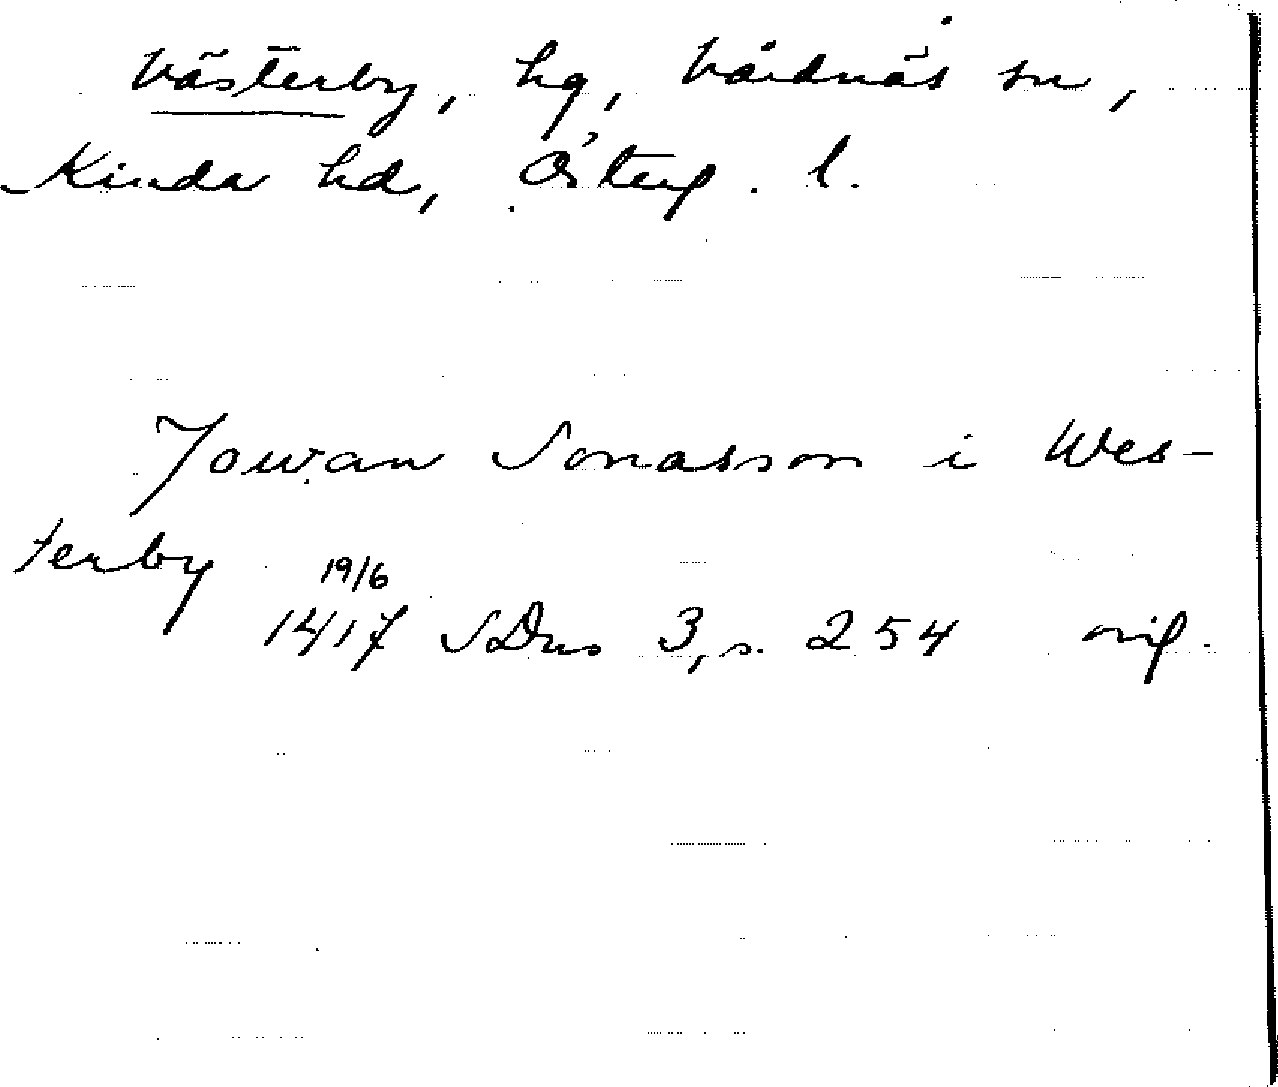 Västerby, hg, Vårdnäs sn,
Kinda hd, Österg. l.
Jowan Jonasson i Wes-
terby
19/6
1417 SDns 3, s. 254 orig.